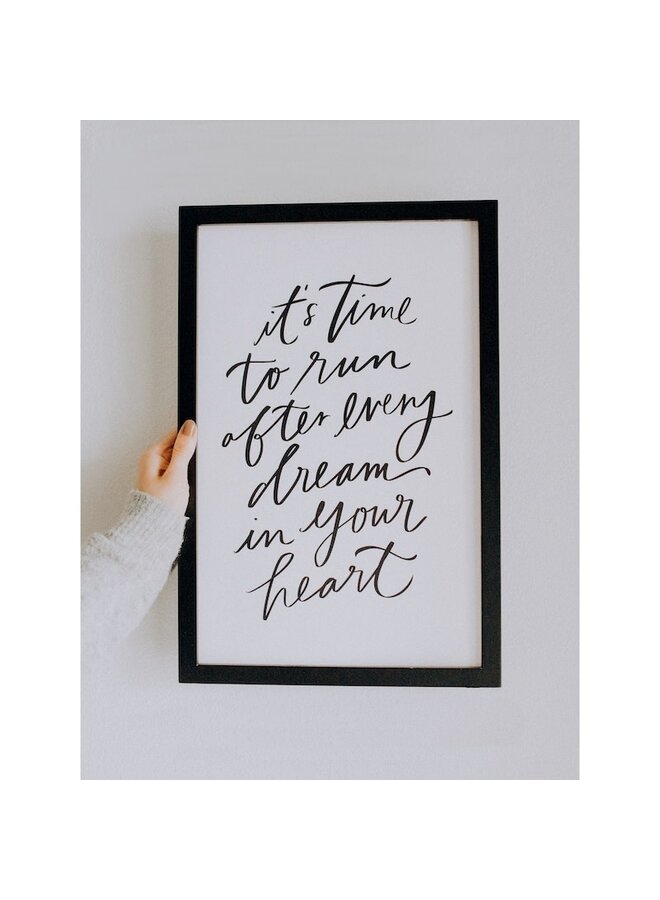 it's time
to run
after every
dream
in your
heart